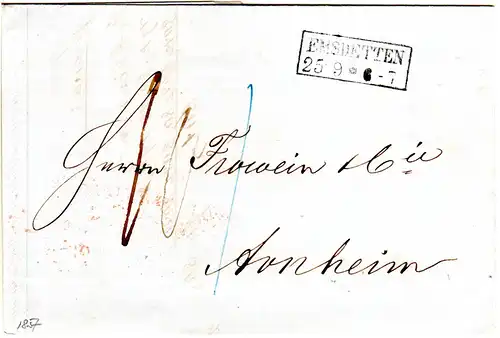 EMSDETTEN
25 9 * 6-7
Herrn Frowein & Cie
Arnheim
1857